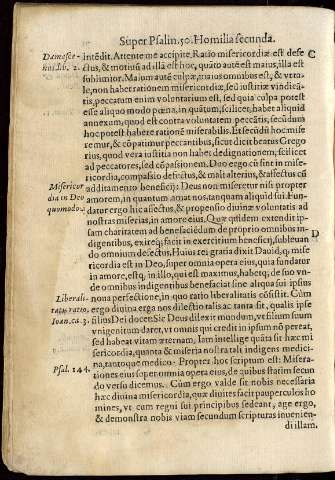 Super Psalm. 50. Homilia secunda.
Damasce-
nus li. 2.
intēdit. Attente me accipite. Ratio misericordiæ est defe C
ctus, & motiuū ad illa est hoc, quāto autē est maius, illa est
sublimior. Maium autē culpæ, maius omnibus est, & vt ta-
le, non habet rationem misericordiæ, sed iustitiæ vindicā-
tis, peccatum enim voluntarium est, sed quia culpa potest
esse aliquo modo pœna, in quātum, scilicet, habet aliquid
annexum, quod est contra voluntatem peccātis, secūdum
hoc potest habere rationē miserabilis. Et secūdū hoc mise
remur, & cōpatimur peccantibus, sicut dicit beatus Grego
rius, quod vera iustitia non habet dedignationem, scilicet
ad peccatores, sed cōpassionem. Duo ergo cū sint in mise-
ricordia, compassio defectus, & mali alterius, & affectus cū
Misericor
dia in Deo
quomodo.
additamento beneficij: Deus non miseretur nisi propter
amorem, in quantum amat nos, tanquam aliquid sui. Fun-
datur ergo hic affectus, & propensio diuinæ voluntatis ad
nostras miserias, in amore eius. Quæ quidem extendit ip-
sam charitatem ad benefaciēdum de proprio omnibus in-
digentibus, exireq́; facit in exercitium beneficij, subleuan D
do omnium defectus. Huius rei gratia dixit Dauid, q̄ mise
ricordia est in Deo, super omnia opera eius, quia fundatur
in amore, estq́, in illo, qui est maximus, habetq́; de suo vn-
de omnibus indigentibus benefaciat sine aliqua sui ipsius
Liberali-
tatis ratio.
Ioan. ca. 3.
nona persectione, in quo ratio liberalitatis cōsistit. Cùm
ergo diuina erga nos dilectio talis ac tanta sit, qualis ipse
filius Dei docet: Sic Deus dilexit mundum, vt filium suum
vnigenitum daret, vt omnis qui credit in ipsum nō pereat,
sed habeat vitam æternam, Iam intellige quāta sit hæc mi
sericordia, quanta & miseria nostra tali indigens medici-
na, tantoque medico. Propter hoc scriptum est: Misera-
Psal. 144.
tiones eius super omnia opera eius, de quibus statim secun
do versu dicemus. Cùm ergo valde sit nobis necessaria
hæc diuina misericordia, quæ diuites facit pauperculos ho
mines, vt cum regni sui principibus sedeant, age ergo,
& demonstra nobis viam secundum scripturas inuenien-
di illam.